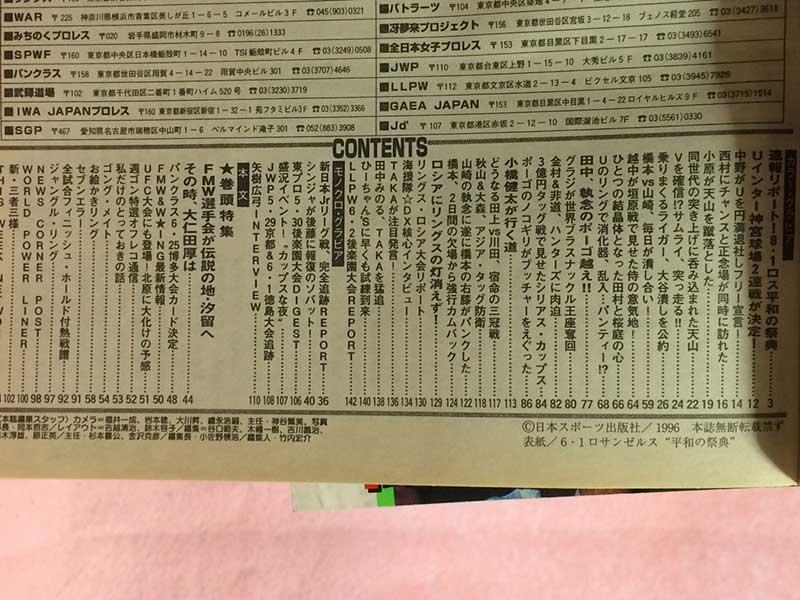 ■WAR 〒225 神奈川県横浜市青葉区美しが丘1-6-5 コメールビル3F ☎045(903)0321
■みちのくプロレス 〒020 岩手県盛岡市材木町9-8 ☎0196(26)1333
■SPWF 〒160 東京都中央区日本橋蛎殻町1-14-10 TSI蛎殻町ビル4F ☎03(3249)0508
■パンクラス 〒158 東京都世田谷区用賀4-14-2 用賀中央ビル301 ☎03(3707)4646
■武輝道場 〒102 東京都千代田区二番町1番町ハイム520号 ☎03(3230)3719
■IWA JAPANプロレス 〒160 東京都新宿区新宿1-32-1 苑フタミビル3F ☎03(3352)3366
■SGP 〒467 愛知県名古屋市瑞穂区中山町1-6 ベルマインド滝子301 ☎052(883)3908
■バトラーツ
■冴夢来プロジェクト 〒156 東京都世田谷区宮坂3-12-18 フェノス経堂205 ☎03(3)3168
■全日本女子プロレス 〒153 東京都目黒区下目黒2-17-17 ☎03(3493)6541
■JWP 〒110 東京都台東区上野1-15-11 大秀ビル5F ☎03(3839)4161
■LLPW 〒112 東京都文京区水道2-13-4 ピクセル文京105 ☎03(3945)7926
■GAEA JAPAN 〒153 東京都目黒区中目黒1-4-22 ロイヤルヒルズ9F ☎03(3715)1514
■Jd' 〒107 東京都港区赤坂2-12-10 国際溜池ビル7F ☎03(5561)0330
CONTENTS
カラーグラビア
速報リポート!8・1ロス平和の祭典 3
Uインター神宮球場2連戦が決定! 12
中野がUを円満退社しフリー宣言! 14
西村にチャンスと正念場が同時に訪れた 16
小原が天山を蹴落とした 19
同世代の突き上げに呑み込まれた天山 22
Vを確信!?サムライ、突っ走る!! 24
乗りまくるライガー、大谷潰しを公約 26
橋本vs山崎、毎日が潰し合い! 59
越中が垣原戦で見せた侍の意気地! 64
ひとつの結晶体となった田村と桜庭の心 66
Uのリングで消化器、乱入、パンティー!? 68
田中、執念のポーゴ越え!! 77
グラジが世界ブラスナックル王座奪回 80
金村&非道、ハンターズに肉迫 82
3億円タッグ戦で見せたシリアス・カップス 84
ポーゴのノコギリがブッチャーをえぐった 86
小橋健太が行く道 113
どうなる田上vs川田、宿命の三冠戦 117
秋山&大森、アジア・タッグ防衛 118
山崎の執念に遂に橋本の右膝がパンクした 122
橋本、2日間の欠場から強行カムバック 124
ロシアにリングスの灯消えず! 129
リングス・ロシア大会リポート 130
海援隊☆DX核心インタビュー 134
TAKAが注目発言! 136
田中みのる、TAKAを猛追 138
ひーちゃんSに早くも試練到来 140
LLPW6・2後楽園大会REPORT 142
モノクロ・グラビア
新日本Jrリーグ戦、完全追跡REPORT 36
シンジャが後藤に報復のソバット! 40
東プロ5・30後楽園大会DIGEST 106
盛況イベント!"カップスな夜" 107
JWP5・29京都&6・1徳島大会追跡 108
矢樹広弓INTERVIEW 110
本文
★巻頭特集
FMW選手会が伝説の地・汐留へ
その時、大仁田厚は 44
パンクラス6・25博多大会カード決定 48
FMW&W★ING最新情報 50
UFC大会にも登場!北原に大化けの予感 51
週ゴン特選オフレコ通信 52
私だけのとっておきの話 53
ゴング・メイト 54
お絵かきリング 58
セブンエラー 91
ジャングル・リング 92
全試合フィニッシュ・ホールド付熱戦譜 97
NEWS CORNER POST 98
WORLD POWER LINER 100
新・若者三様 102
THIS WEEK NETWO 104
〔本誌編集スタッフ〕カメラ=櫻井一成、岩本穂、大川昇、織永浩嗣、主任・神谷繁美、写真
長・岡本恭志/レイアウト=古越清治、鈴木容子/編集=谷口範夫、木嶋一樹、吉川義治、
木淳雄、原正英/主任・杉本喜公、金沢克彦/編集長・小佐野景浩/編集人・竹内宏介
©日本スポーツ出版社/1996 本誌無断転載禁ず
表紙/6・1ロサンゼルス "平和の祭典"